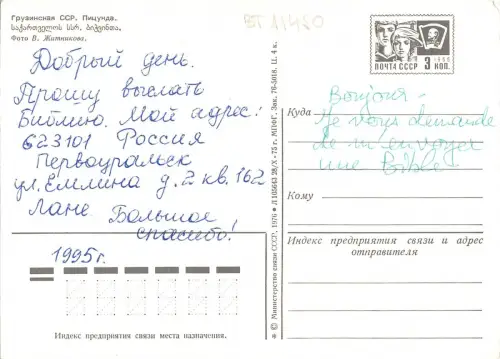 Грузинская ССР. Пицунда.
საქართველოს სსრ. ბიჭვინთა.
Фото В. Житникова.
БТ 11420
Добрый день.
Прошу выслать
Библию. Мой адрес:
623101 Россия
Первоуральск
ул. Емлина д. 2 кв. 162
Лане. Большое
спасибо!
1995 г.
Индекс предприятия связи места назначения.
© Министерство связи СССР. 1976 ● Л 105643 28/X-75 г. МПФГ. Зак. 76-5018. Ц. 4 к.
ПОЧТА СССР 3 КОП.
1966
Куда
Bonjour -
Je vous demande
de m'envoyer
une Bible
Кому
Индекс предприятия связи и адрес
отправителя